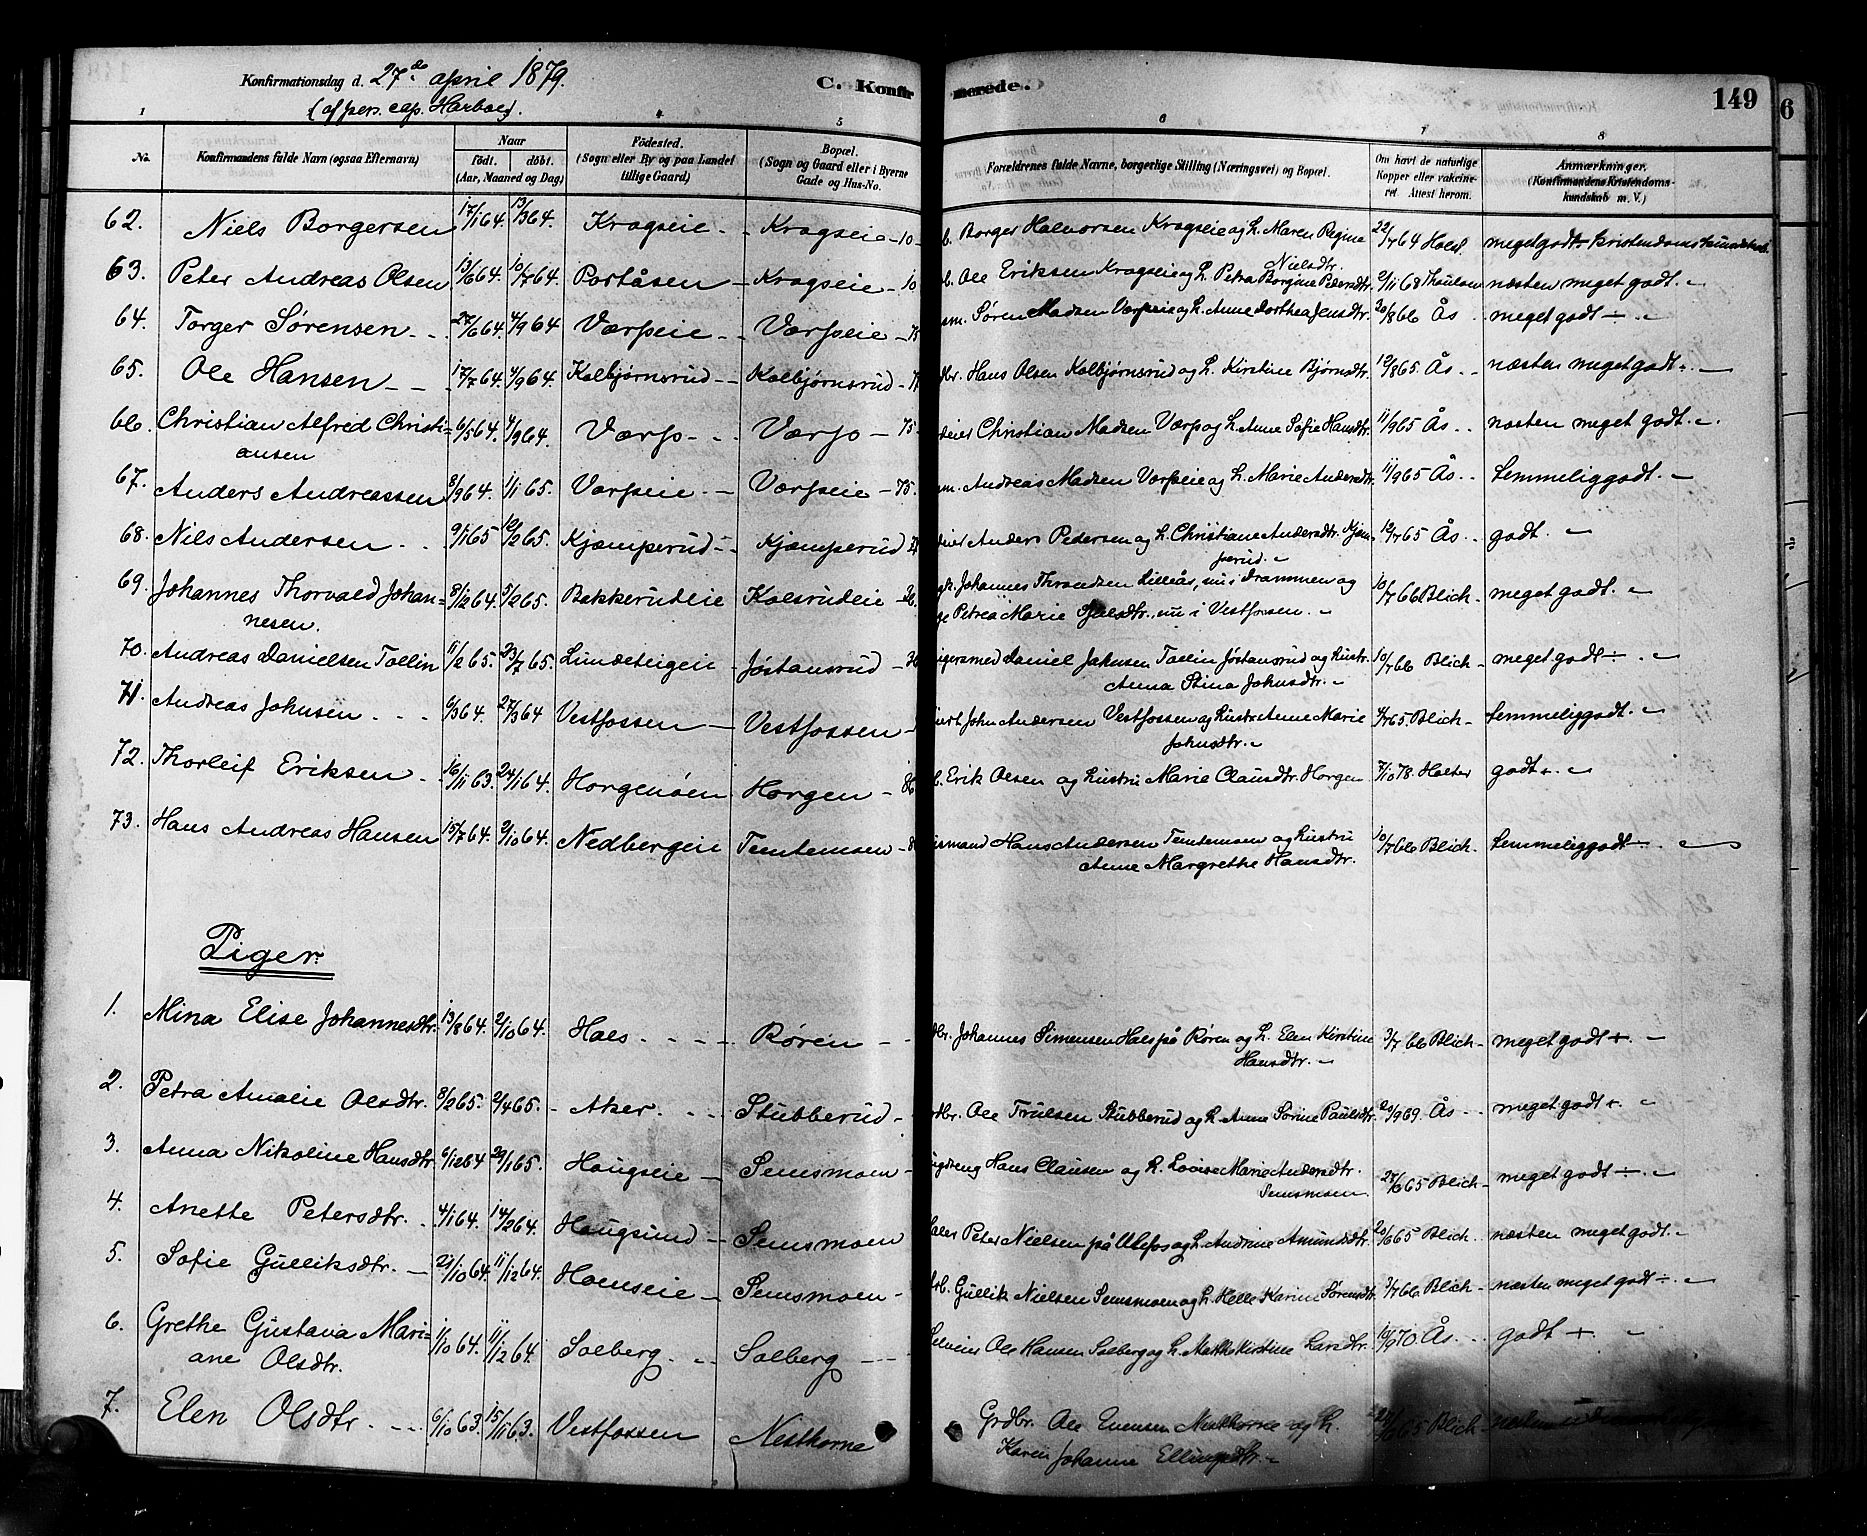 Konfirmationsdag d. 27de april 1879. C. Konfirmerede. 149
(af pers. cap. Harboe).
1 4 5 6 7 8
No. Konfirmandens fulde Navn (ogsaa Efternavn) Naar født. døbt. (Aar, Maaned og Dag) Fødested. (Sogn eller By og paa Landet tillige Gaard) Bopæl. (Sogn og Gaard eller i Byerne Gade og Hus-No. Forældrenes fulde Navne, borgerlige Stilling (Næringsvei) og Bopæl. Om havt de naturlige Kopper eller vakcineret. Attest herom. Anmærkninger. (Konfirmandens Kristendomskundskab m. V.)
62. Niels Borgersen 17/1 64. 13/3 64. Kragseie - Kragseie - 10 b. Borger Halvorsen Kragseie og h. Maren Regine Nielsdtr. 22/7 64 Hals. meget godt kristendomskundskab.
63. Peter Andreas Olsen 13/6 64. 10/7 64. Portåsen - Kragseie - 10 b. Ole Eriksen Kragseie og h. Petra Borgine Pedersdtr. 2/11 68 Thaulow næsten meget godt. "
64. Torger Sørensen 27/6 64. 4/9 64. Værpeie Værpeie - sm. Søren Madsen Værpeie og h. Anne Dorthea Jensdtr. 20/8 66 Ås meget godt ÷ "
65. Ole Hansen 17/7 64. 4/9 64. Kolbjørnsrud Kolbjørnsrud - dbr. Hans Olsen Kolbjørnsrud og h. Kirstine Bjørnsdtr. 12/8 65. Ås næsten meget godt ÷ "
66. Christian Alfred Christi=
ansen 6/5 64. 4/9 64. Værp Værp - 75. deier Christian Madsen Værp og h. Anne Sofie Hansdtr. 11/9 65 Ås næsten meget godt. "
67. Anders Andreassen 8/9 64. 1/1 65. Værpeie Værpeie - 75. m. Andreas Madsen Værpeie og h. Marie Andersdtr. 11/9 65 Ås temmelig godt. "
68. Nils Andersen 9/1 65 12/2 65. Kjæmperud Kjæmperud deier Anders Pedersen og h. Christiane Andersdtr. Kjæm
perud. " 12/7 65 Ås godt. "
69. Johannes Thorvald Johan=
nesen. 8/12 64. 5/2 65. Bakkerudeie Kolsrudeie - 26. Johannes Throndsen Lilleås, nu i Drammen og
Petrea Marie Pjalsdtr., nu i Vestfossen. " 10/7 66 Blich meget godt. "
70. Andreas Danielsen Tollin 11/2 65. 23/7 65. Lundeteigeie Jøstansrud - gersmed Daniel Johnsen Tollin Jøstansrud og hustr.
Anna Stina Johnsdtr. " 10/7 66 Blich meget godt ÷ "
71. Andreas Johnsen 6/3 64. 27/3 64 Vestfossen Vestfossen John Andersen Vestfossen og hustr. Anne Marie
Johnsdtr. " 4/7 65 Blich temmelig godt. "
72. Thorleif Eriksen 16/11 63. 24/1 64. Horgenøen Horgen - 86 b. Erik Olsen og hustru Marie Clausdtr. Horgen 7/10 78. Holter godt. "
73. Hans Andreas Hansen 15/7 64. 2/10 64. Nedbergeie Temtemoen - 8 rmand Hans Andersen Temtemoen og hustru
Anne Margrethe Hansdtr. 10/7 66 Blich temmelig godt ÷ "
Piger.
1. Mina Elise Johannesdtr. 13/8 64. 2/10 64. Hals Røren br. Johannes Simensen Hals på Røren og h. Elen Kirstine
Hansdtr. " 3/7 66 Blich meget godt +. "
2. Petra Amalie Olsdtr. 8/2 65. 2/4 65. Aker. Stubberud rdbr. Ole Trulsen Stubberud og h. Anne Sørine Paulsdtr. 21/9 69. Ås meget godt +. "
3. Anna Nikoline Hansdtr. 6/12 64 29/1 65. Hougseie Semsmoen Hans Clausen og h. Lovise Marie Andersdtr.
Semsmoen 27/6 65 Blich meget godt ÷ "
4. Anette Petersdtr. 4/1 64. 14/2 64. Hougsund Semsmoen Peter Nielsen på Ulefos og h. Andrine Amundsdtr. 20/6 65 Blich næsten meget godt. "
5. Sofie Gulliksdtr. 21/10 64. 11/12 64. Hoenseie Semsmoen rb. Gullik Nielsen Semsmoen og h. Helle Karine Sørensdtr. 3/7 66 Blich næsten meget godt ÷ "
6. Grethe Gustava Mari=
ane Olsdtr. 1/10 64. 11/12 64. Solberg Solberg Selveier Ole Hansen Solberg og h. Marthe Kirstine Larsdtr. 16/9 70. Ås godt + "
7. Elen Olsdtr. 6/10 63. 15/11 63. Vestfossen Nesthorne Grdbr. Ole Evensen Nesthorne og h.
Karen Johanne Ellingsdtr. " 65 Blich næsten